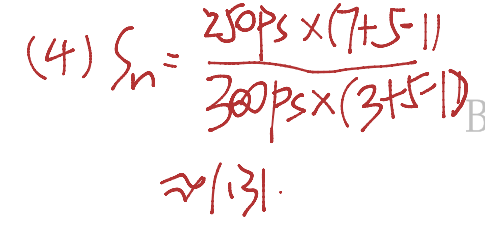 (4) Sn = 250ps×(7+5-1) / 300ps×(3+5-1)
≈1.31.
B